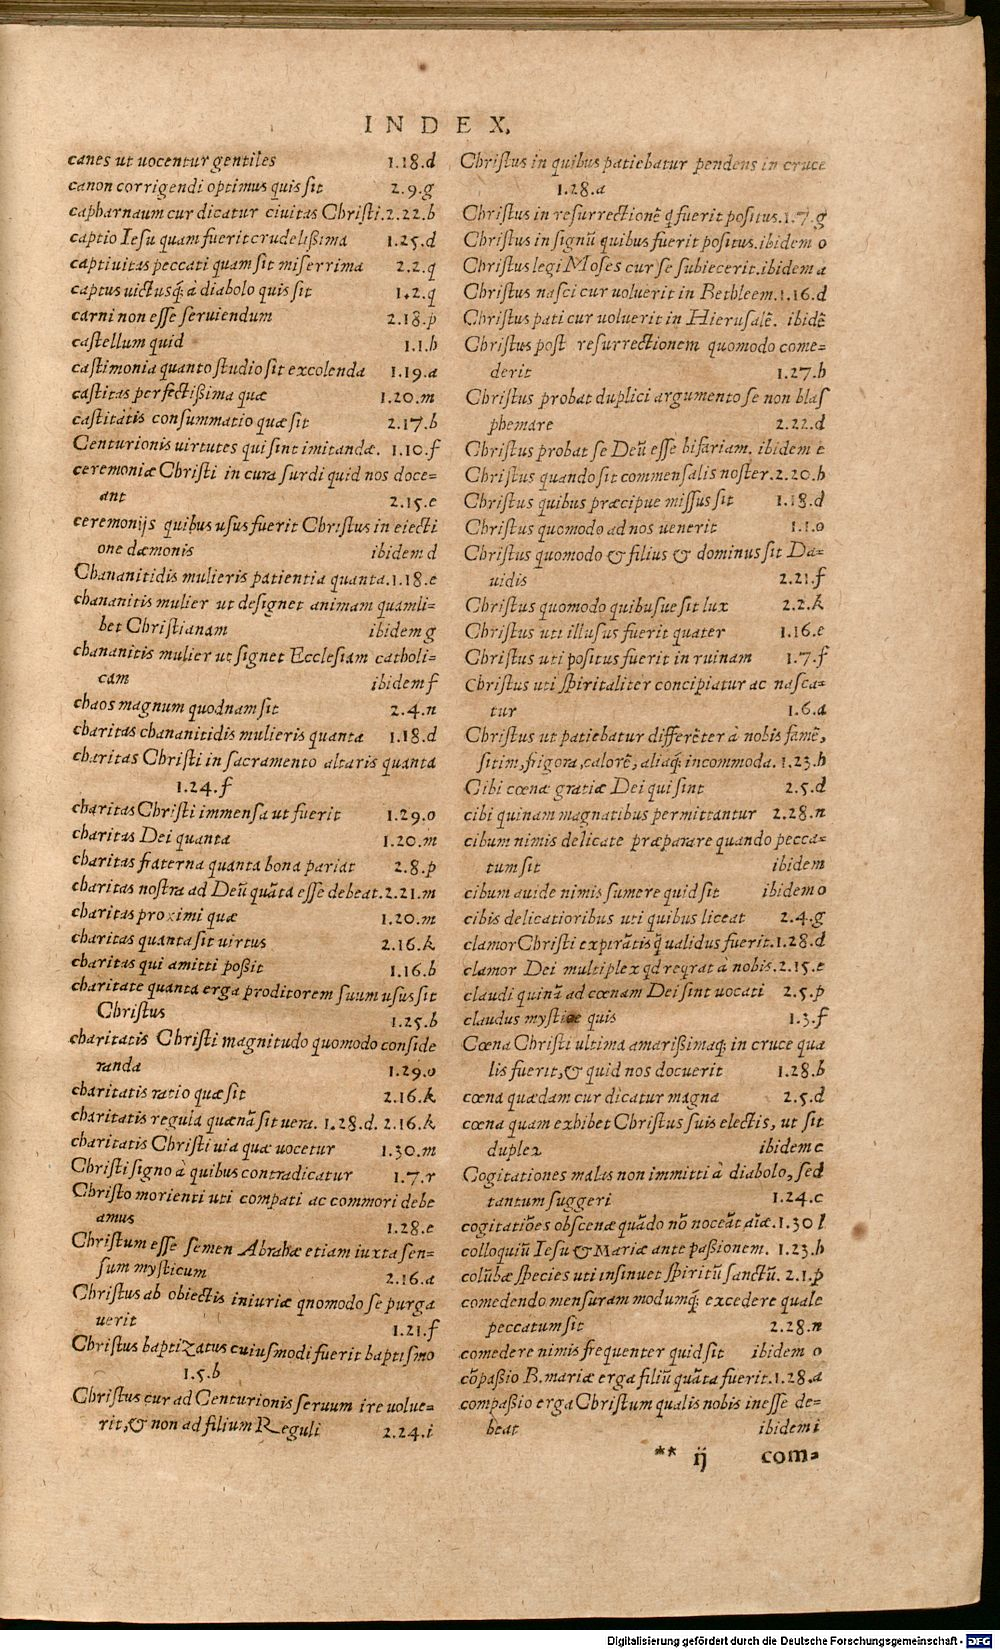 INDEX.
canes ut uocentur gentiles 1.18.d
canon corrigendi optimus quis sit 2.9.g
capharnaum cur dicatur ciuitas Christi. 2.22.b
captio Iesu quam fuerit crudelißima 1.25.d
captiuitas peccati quam sit miserrima 2.2.q
captus uictusq́; à diabolo quis sit 1.2.q
carni non esse seruiendum 2.18.p
castellum quid 1.1.h
castimonia quanto studio sit excolenda 1.19.a
castitas perfectißima quæ 1.20.m
castitatis consummatio quæ sit 2.17.b
Centurionis uirtutes qui sint imitandæ. 1.10.f
ceremoniæ Christi in cura surdi quid nos doce=
ant 2.15.e
ceremonijs quibus usus fuerit Christus in eiecti
one dæmonis ibidem d
Chananitidis mulieris patientia quanta. 1.18.e
chananitis mulier ut designet animam quamli=
bet Christianam ibidem g
chananitis mulier ut signet Ecclesiam catholi=
cam ibidem f
chaos magnum quodnam sit 2.4.n
charitas chananitidis mulieris quanta 1.18.d
charitas Christi in sacramento altaris quanta
1.24.f
charitas Christi immensa ut fuerit 1.29.o
charitas Dei quanta 1.20.m
charitas fraterna quanta bona pariat 2.8.p
charitas nostra ad Deū quāta esse debeat. 2.21.m
charitas proximi quæ 1.20.m
charitas quanta sit uirtus 2.16.k
charitas qui amitti poßit 1.16.b
charitate quanta erga proditorem suum usus sit
Christus 1.25.b
charitatis Christi magnitudo quomodo conside
randa 1.29.o
charitatis ratio quæ sit 2.16.k
charitatis regula quænā sit uera. 1.28.d. 2.16.k
charitatis Christi uia quæ uocetur 1.30.m
Christi signo à quibus contradicatur 1.7.r
Christo morienti uti compati ac commori debe
amus 1.28.e
Christum esse semen Abrahæ etiam iuxta sen=
sum mysticum 2.16.a
Christus ab obiectis iniuriæ qnomodo se purga
uerit 1.21.f
Christus baptizatus cuiusmodi fuerit baptismo
1.5.b
Christus cur ad Centurionis seruum ire uolue=
rit, & non ad filium Reguli 2.24.i
Christus in quibus patiebatur pendens in cruce
1.28.a
Christus in resurrectionē q̄ fuerit positus. 1.7.g
Christus in signū quibus fuerit positus. ibidem o
Christus legi Moses cur se subiecerit. ibidem a
Christus nasci cur uoluerit in Bethleem. 1.16.d
Christus pati cur uoluerit in Hierusalē. ibidē
Christus post resurrectionem quomodo come=
derit 1.27.h
Christus probat duplici argumento se non blas
phemare 2.22.d
Christus probat se Deū esse bifariam. ibidem e
Christus quando sit commensalis noster. 2.20.b
Christus quibus præcipue missus sit 1.18.d
Christus quomodo ad nos uenerit 1.1.o
Christus quomodo & filius & dominus sit Da=
uidis 2.21.f
Christus quomodo quibusue sit lux 2.2.k
Christus uti illusus fuerit quater 1.16.e
Christus uti positus fuerit in ruinam 1.7.f
Christus uti spiritaliter concipiatur ac nasca=
tur 1.6.a
Christus ut patiebatur differēter à nobis famē,
sitim, frigora, calorē, aliaq́; incommoda. 1.23.h
Cibi cœnæ gratiæ Dei qui sint 2.5.d
cibi quinam magnatibus permittantur 2.28.n
cibum nimis delicate præparare quando pecca=
tum sit ibidem
cibum auide nimis sumere quid sit ibidem o
cibis delicatioribus uti quibus liceat 2.4.g
clamor Christi expirātis q̄ ualidus fuerit. 1.28.d
clamor Dei multiplex qd reqrat à nobis. 2.15.e
claudi quinā ad cœnam Dei sint uocati 2.5.p
claudus mystice quis 1.3.f
Cœna Christi ultima amarißimaq́; in cruce qua
lis fuerit, & quid nos docuerit 1.28.b
cœna quædam cur dicatur magna 2.5.d
cœna quam exhibet Christus suis electis, ut sit
duplex ibidem c
Cogitationes malas non immitti à diabolo, sed
tantum suggeri 1.24.c
cogitatiōes obscenæ quādo nō noceāt aīæ. 1.30 l
colloquiū Iesu & Mariæ ante paßionem. 1.23.h
colūbæ species uti insinuet spiritū sanctū. 2.1.p
comedendo mensuram modumq́; excedere quale
peccatum sit 2.28.n
comedere nimis frequenter quid sit ibidem o
cōpaßio B. mariæ erga filiū quāta fuerit. 1.28.a
compaßio erga Christum qualis nobis inesse de=
beat ibidem i
** ij com=
Digitalisierung gefördert durch die Deutsche Forschungsgemeinschaft - DFG